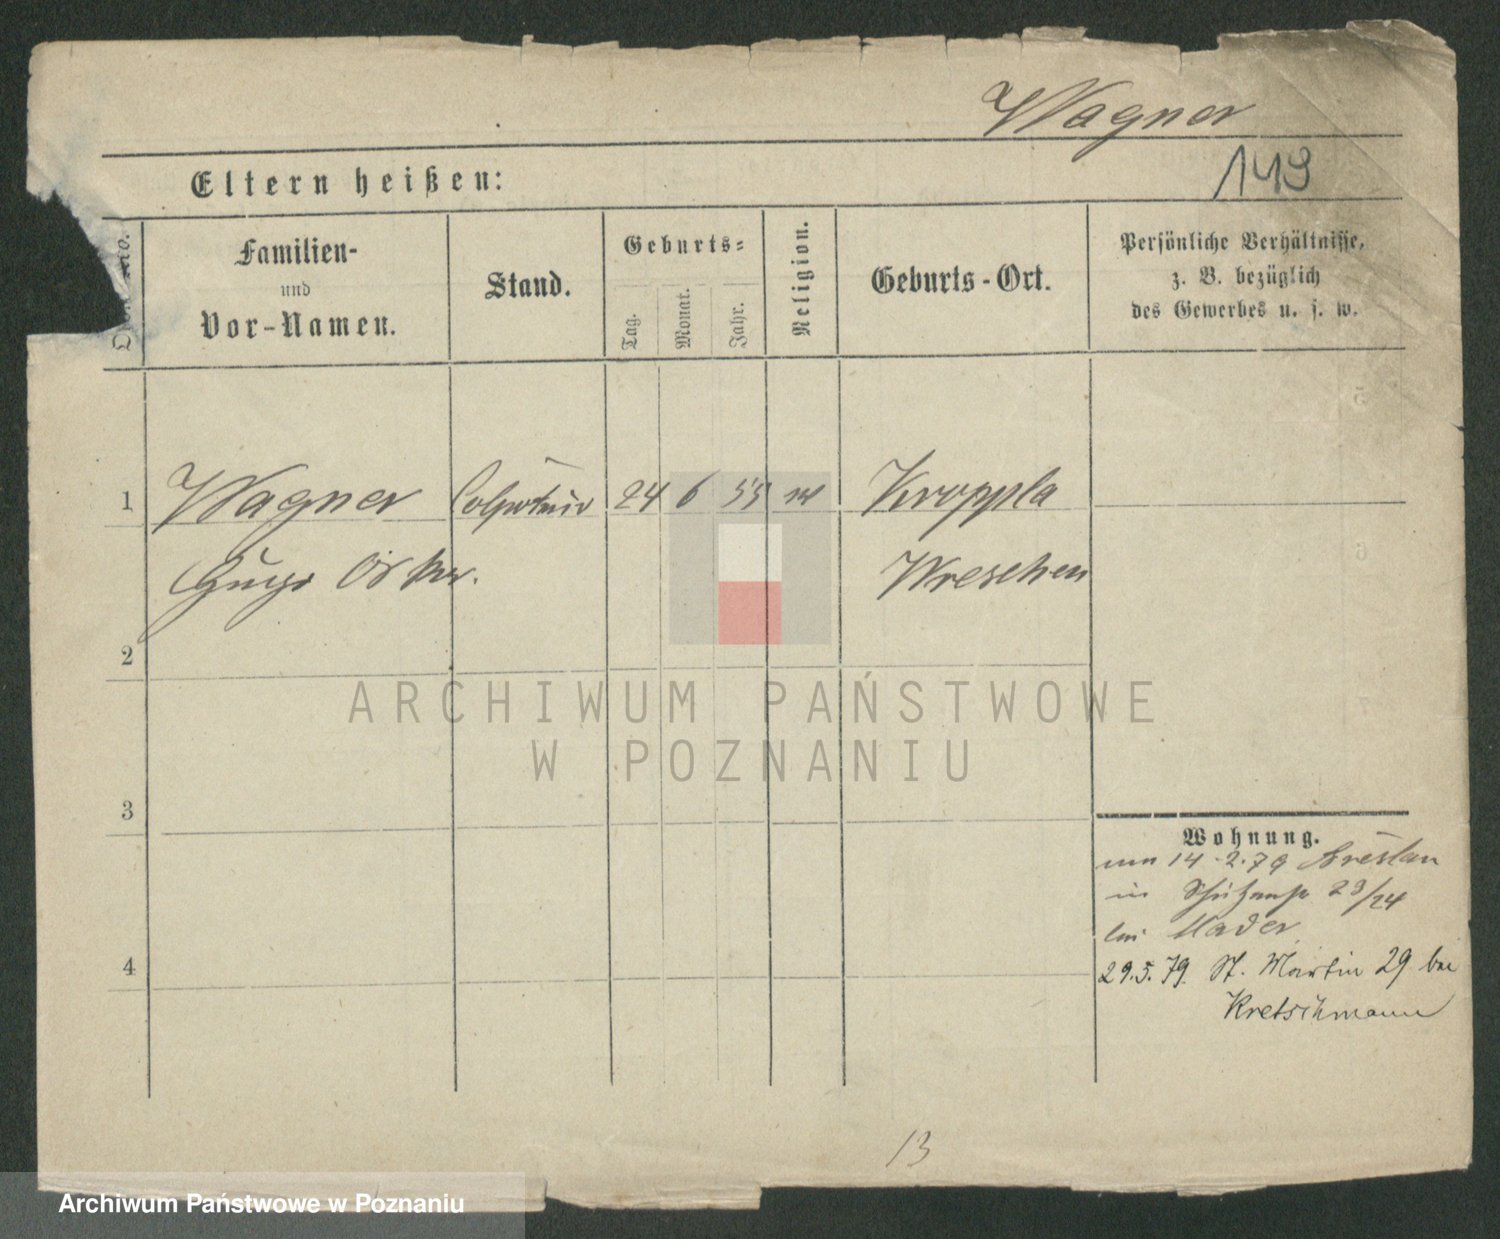 Wagner
149
Eltern heißen:
No.
Familien-
und
Vor-Namen.
Stand.
Geburts-
Tag.
Monat.
Jahr.
Religion.
Geburts-Ort.
Persönliche Verhältnisse,
z. B. bezüglich
des Gewerbes u. s. w.
1 Wagner 24 6 55 Kroppla
Hugo Oskar. Wreschen
2
3
4
Wohnung.
14.2.79 Breslau
in 23/24
bei Mader
29.5.79. St. Martin 29 bei
Kretschmann
13
ARCHIWUM PAŃSTWOWE
W POZNANIU
Archiwum Państwowe w Poznaniu